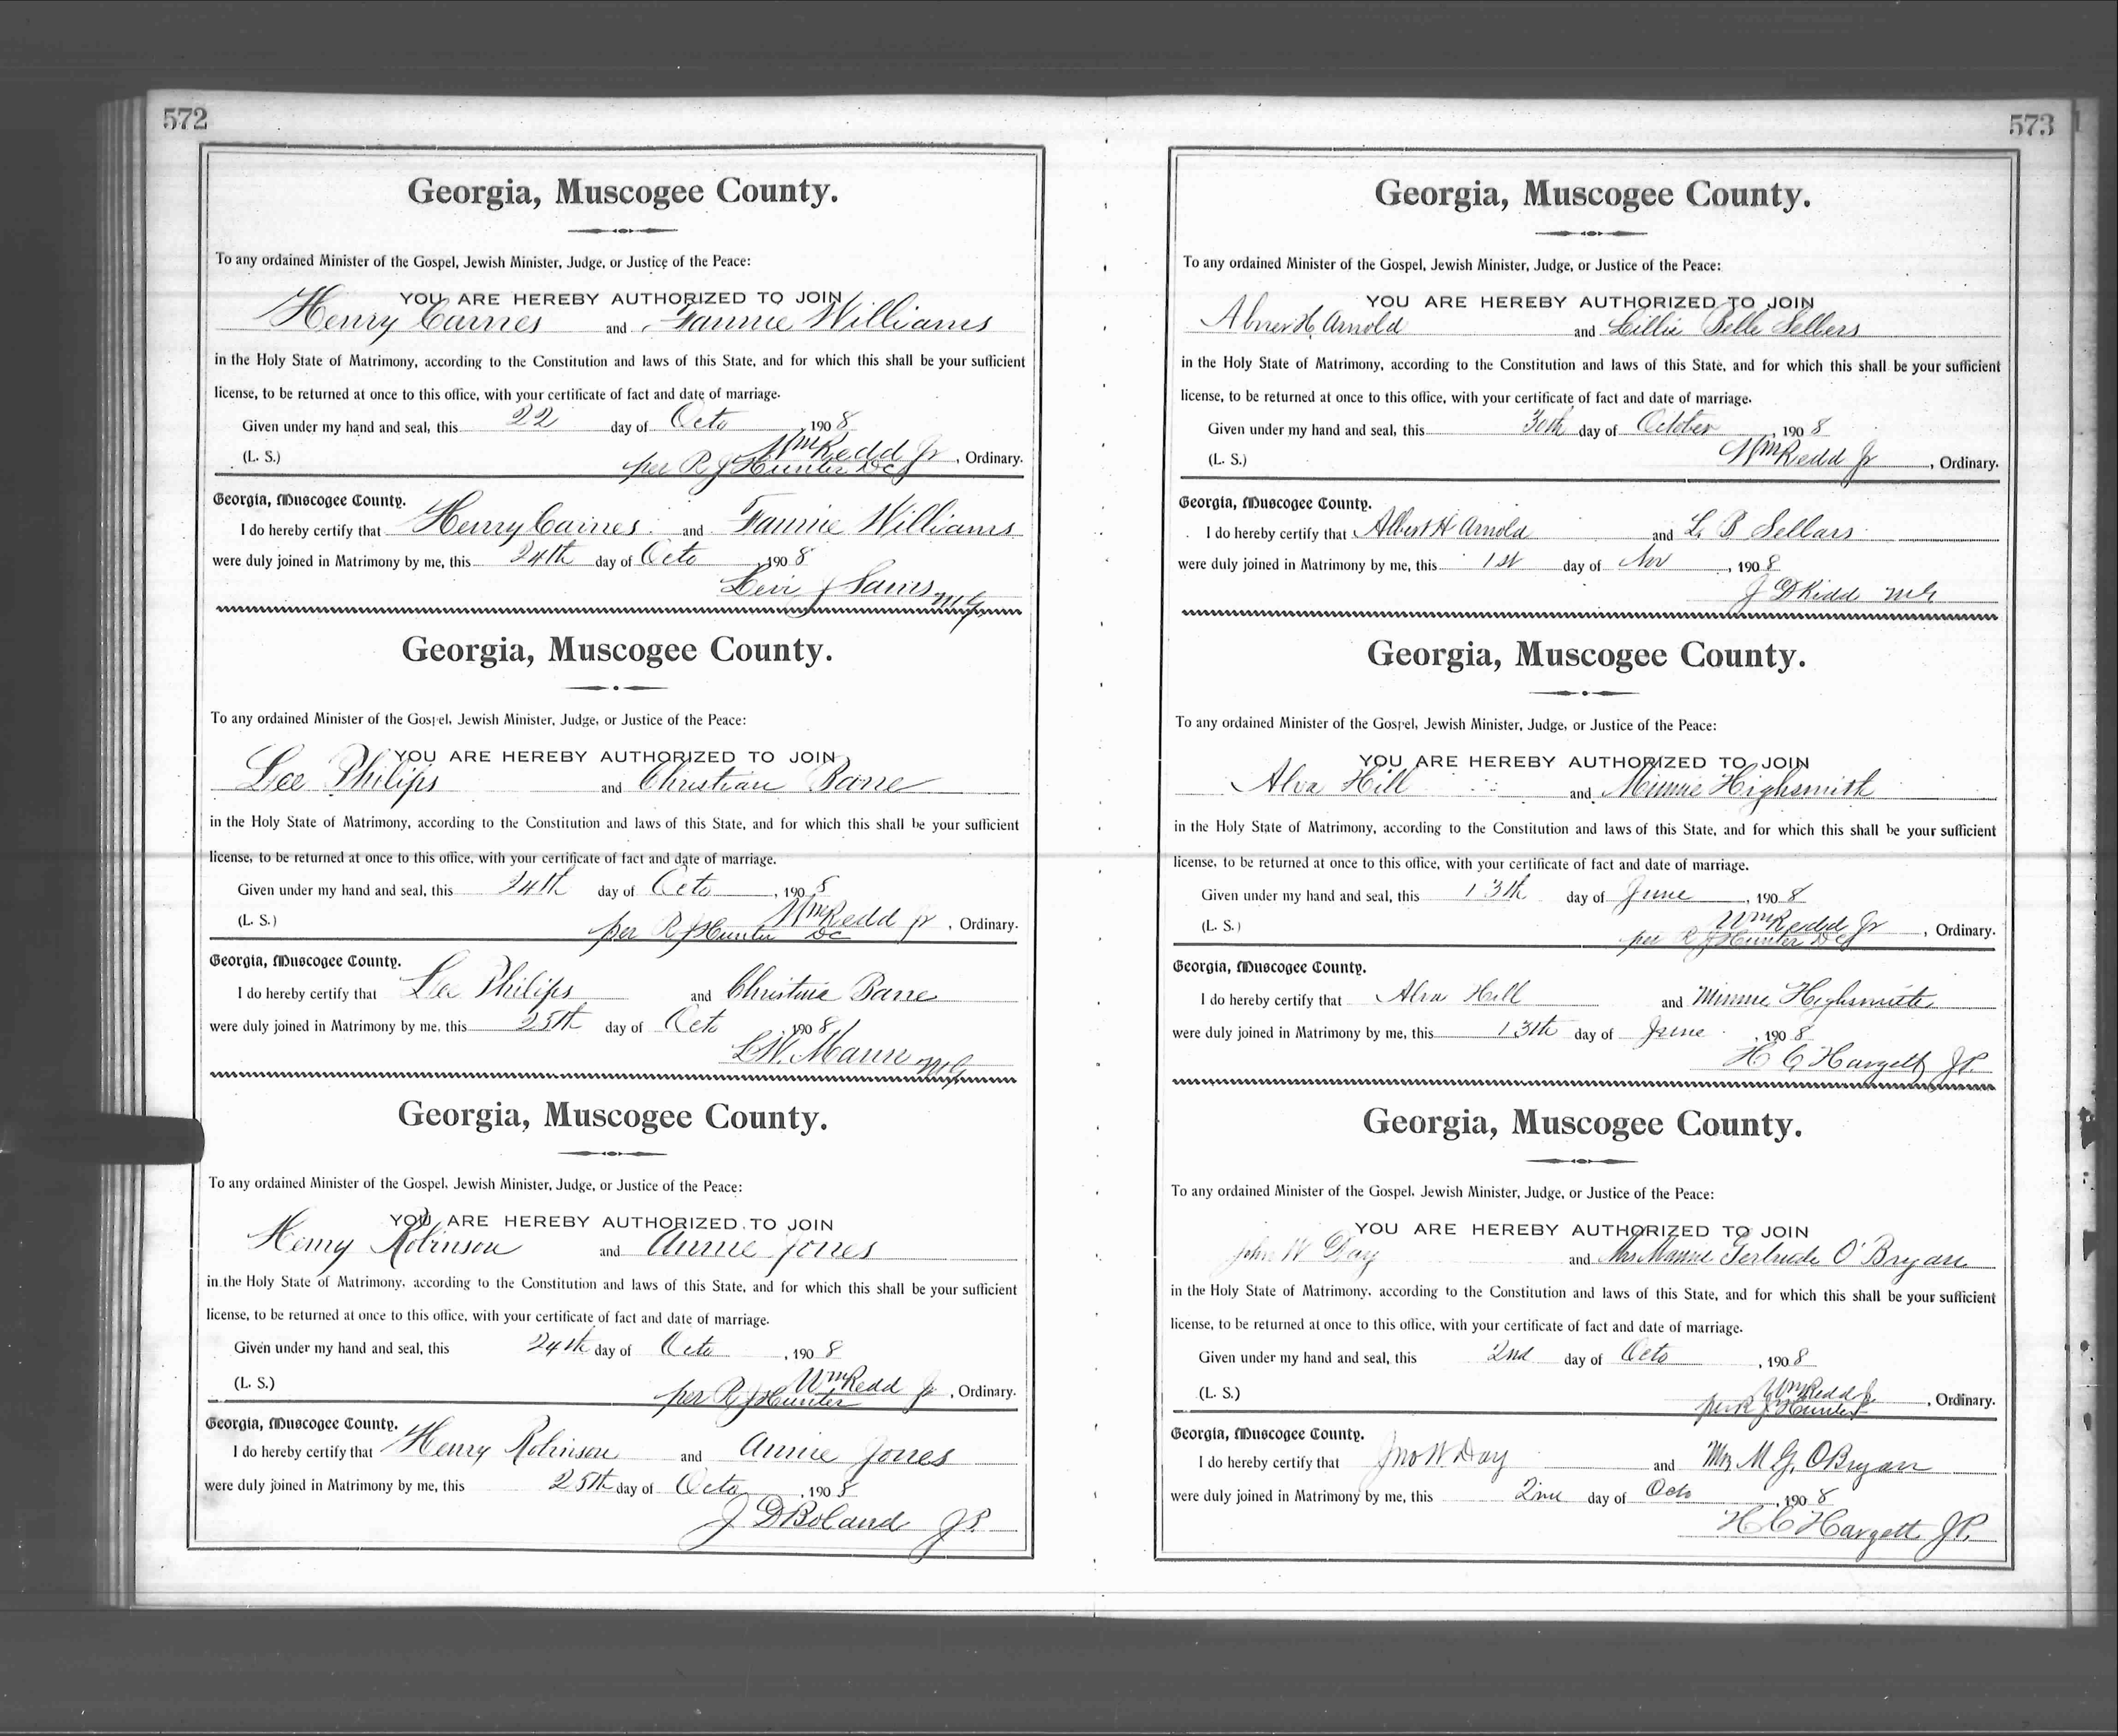 572
Georgia, Muscogee County.
To any ordained Minister of the Gospel, Jewish Minister, Judge, or Justice of the Peace:
YOU ARE HEREBY AUTHORIZED TO JOIN
Henry Carnes and Fannie Williams
in the Holy State of Matrimony, according to the Constitution and laws of this State, and for which this shall be your sufficient
license, to be returned at once to this office, with your certificate of fact and date of marriage.
Given under my hand and seal, this 22 day of Octo, 1908
Wm Redd Jr
(L. S.) per R J Hunter DC, Ordinary.
Georgia, Muscogee County.
I do hereby certify that Henry Carnes and Fannie Williams
were duly joined in Matrimony by me, this 24th day of Octo, 1908
Levi J MG
Georgia, Muscogee County.
To any ordained Minister of the Gospel, Jewish Minister, Judge, or Justice of the Peace:
YOU ARE HEREBY AUTHORIZED TO JOIN
Lee Philips and Christian Bane
in the Holy State of Matrimony, according to the Constitution and laws of this State, and for which this shall be your sufficient
license, to be returned at once to this office, with your certificate of fact and date of marriage.
Given under my hand and seal, this 24th day of Octo, 1908
Wm Redd Jr
(L. S.) per R J Hunter DC, Ordinary.
Georgia, Muscogee County.
I do hereby certify that Lee Philips and Christine Bane
were duly joined in Matrimony by me, this 25th day of Octo, 1908
MG
Georgia, Muscogee County.
To any ordained Minister of the Gospel, Jewish Minister, Judge, or Justice of the Peace:
YOU ARE HEREBY AUTHORIZED TO JOIN
Henry Robinson and Annie Jones
in the Holy State of Matrimony, according to the Constitution and laws of this State, and for which this shall be your sufficient
license, to be returned at once to this office, with your certificate of fact and date of marriage.
Given under my hand and seal, this 24th day of Octo, 1908
Wm Redd Jr
(L. S.) per R J Hunter, Ordinary.
Georgia, Muscogee County.
I do hereby certify that Henry Robinson and Annie Jones
were duly joined in Matrimony by me, this 25th day of Octo, 1908
J D Boland J P.
573
Georgia, Muscogee County.
To any ordained Minister of the Gospel, Jewish Minister, Judge, or Justice of the Peace:
YOU ARE HEREBY AUTHORIZED TO JOIN
Abner H Arnold and Lillie Belle Sellers
in the Holy State of Matrimony, according to the Constitution and laws of this State, and for which this shall be your sufficient
license, to be returned at once to this office, with your certificate of fact and date of marriage.
Given under my hand and seal, this 30th day of October, 1908
(L. S.) Wm Redd Jr, Ordinary.
Georgia, Muscogee County.
I do hereby certify that Albert H Arnold and L B Sellars
were duly joined in Matrimony by me, this 1st day of Nov, 1908
J D Kidd MG
Georgia, Muscogee County.
To any ordained Minister of the Gospel, Jewish Minister, Judge, or Justice of the Peace:
YOU ARE HEREBY AUTHORIZED TO JOIN
Alva Hill and Minnie Highsmith
in the Holy State of Matrimony, according to the Constitution and laws of this State, and for which this shall be your sufficient
license, to be returned at once to this office, with your certificate of fact and date of marriage.
Given under my hand and seal, this 13th day of June, 1908
Wm Redd Jr
(L. S.) per R J Hunter DC, Ordinary.
Georgia, Muscogee County.
I do hereby certify that Alva Hill and Minnie Highsmith
were duly joined in Matrimony by me, this 13th day of June, 1908
H C Hargett J P.
Georgia, Muscogee County.
To any ordained Minister of the Gospel, Jewish Minister, Judge, or Justice of the Peace:
YOU ARE HEREBY AUTHORIZED TO JOIN
John W Day and Mrs Mamie Gertrude O'Bryan
in the Holy State of Matrimony, according to the Constitution and laws of this State, and for which this shall be your sufficient
license, to be returned at once to this office, with your certificate of fact and date of marriage.
Given under my hand and seal, this 2nd day of Octo, 1908
Wm Redd Jr
(L. S.) per R J Hunter, Ordinary.
Georgia, Muscogee County.
I do hereby certify that Jno W Day and Mrs M G, OBryan
were duly joined in Matrimony by me, this 2nd day of Octo, 1908
H C Hargett J P.